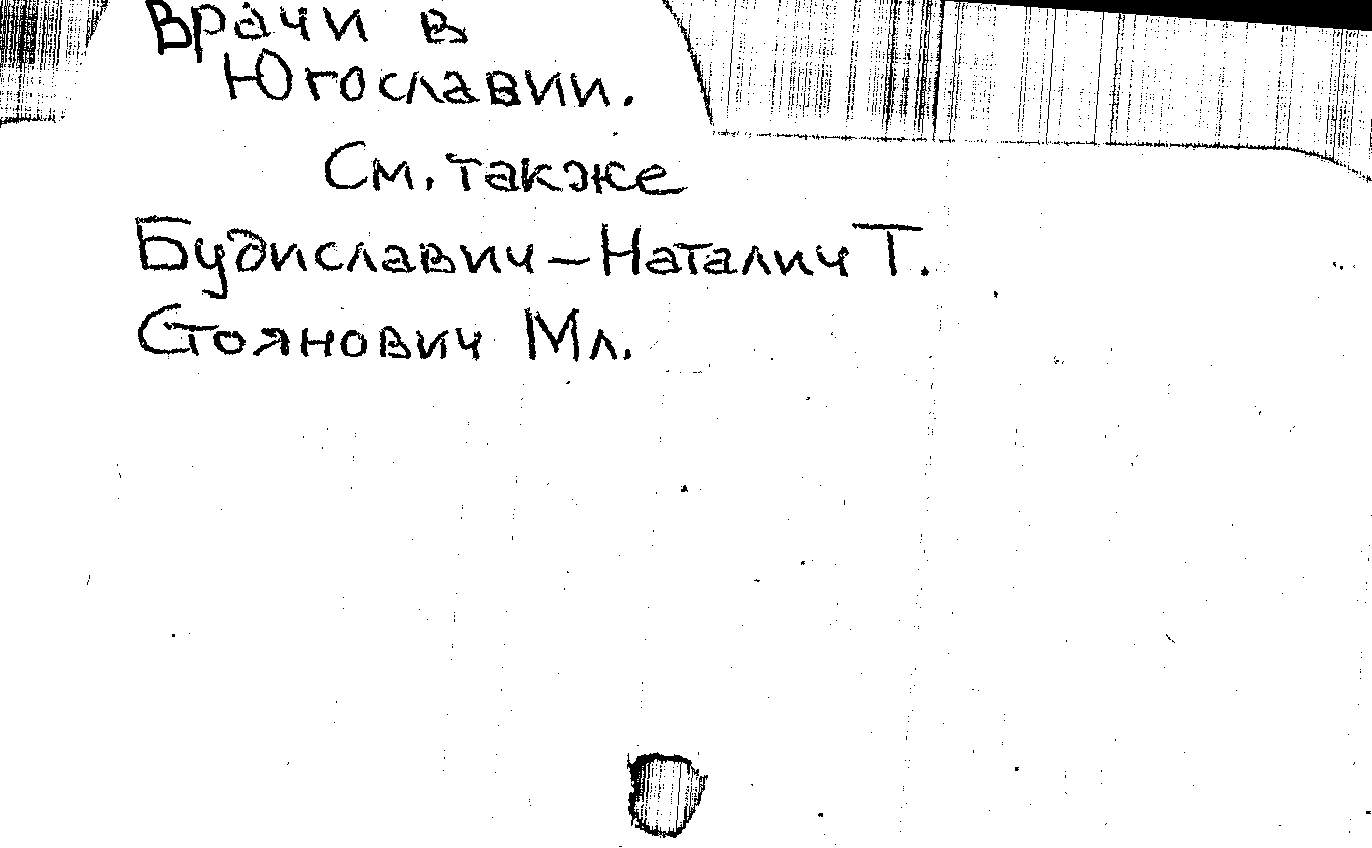 Врачи в
Югославии.
См. также
Будиславич-Наталич Т.
Стоянович Мл.